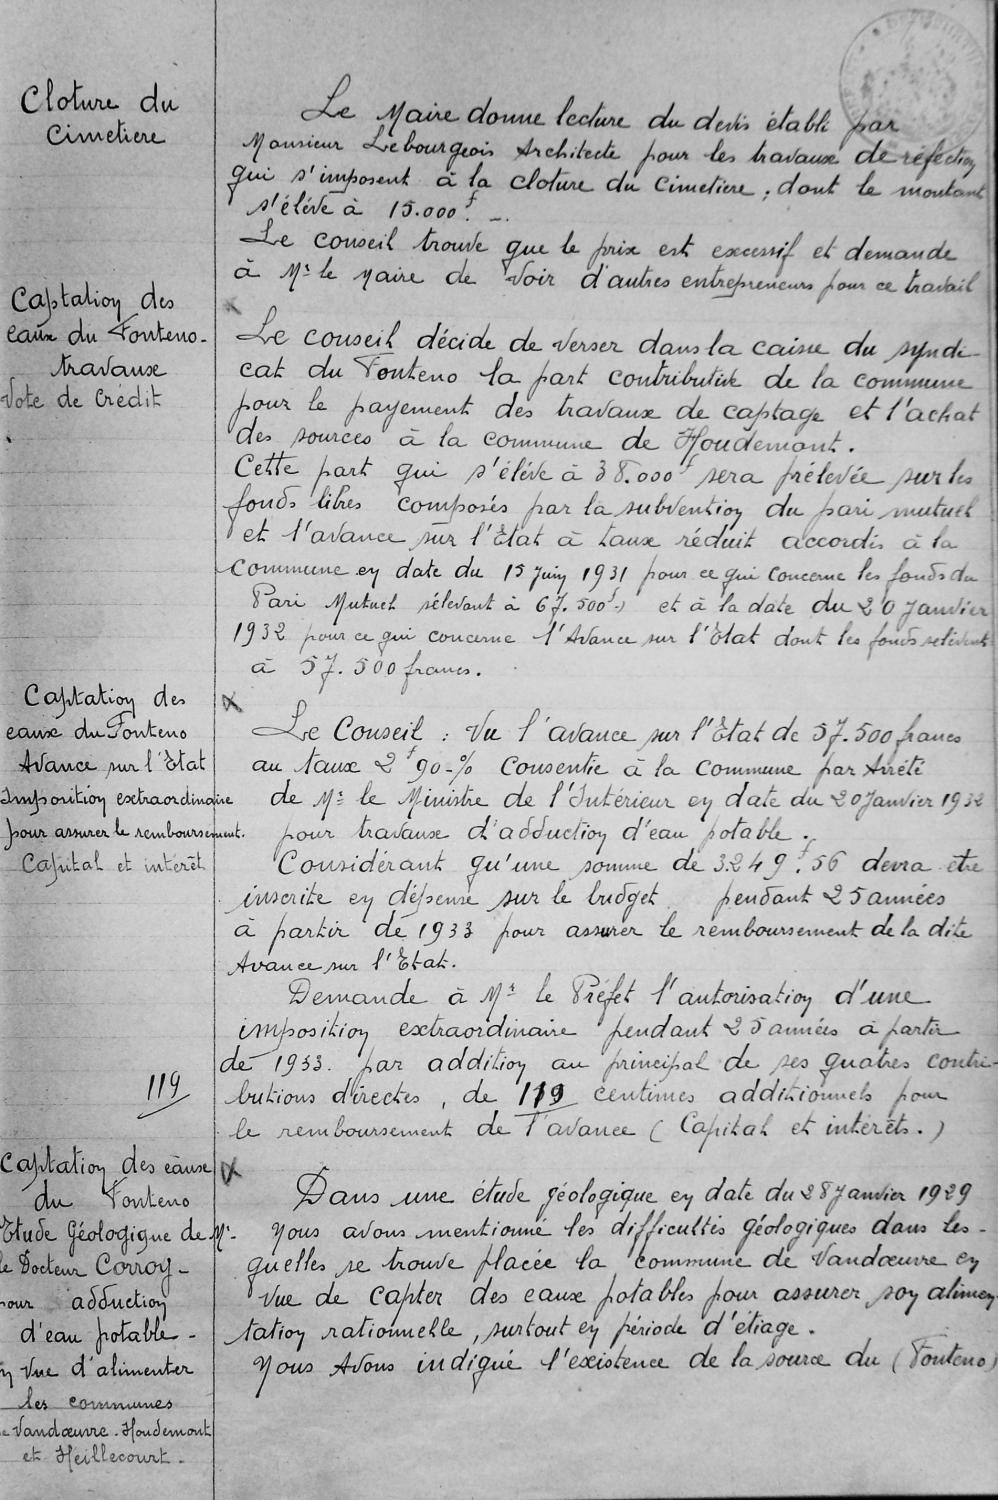 Cloture du
Cimetiere
Le Maire donne lecture du devis établi par
Monsieur Lebourgeois Architecte pour les travaux de réfection
qui s'imposent à la cloture du cimetiere, dont le montant
s'élève à 15.000 f. _.
Le conseil trouve que le prix est excessif et demande
à Mr le Maire de voir d'autres entrepreneurs pour ce travail
Captation des
eaux du Fonteno-
travaux
Vote de Crédit
Le conseil décide de verser dans la caisse du syndi-
cat du Fonteno la part contributive de la commune
pour le payement des travaux de captage et l'achat
des sources à la commune de Houdemont.
Cette part qui s'élève à 38.000 f sera prélevée sur les
fonds libres composés par la subvention du pari mutuel
et l'avance sur l'Etat à taux réduit accordés à la
Commune en date du 15 Juin 1931 pour ce qui concerne les fonds du
Pari Mutuel s'élevant à 67.500 f.) et à la date du 20 Janvier
1932 pour ce qui concerne l'Avance sur l'Etat dont les fonds s'élèvent
à 57.500 francs.
Captation des
eaux du Fonteno
Avance sur l'Etat
Imposition extraordinaire
pour assurer le remboursement.
Capital et intérêt
Le Conseil : Vu l'avance sur l'Etat de 57.500 francs
au taux 2 f 90-% Consentie à la commune par Arrêté
de Mr le Ministre de l'Intérieur en date du 20 Janvier 1932
pour travaux d'adduction d'eau potable.
Considérant qu'une somme de 3.249 f. 56 devra être
inscrite en dépense sur le budget pendant 25 années
à partir de 1933 pour assurer le remboursement de la dite
Avance sur l'Etat.
Demande à Mr le Préfet l'autorisation d'une
imposition extraordinaire pendant 25 années à partir
de 1933. par addition au principal de ses quatres contri-
butions directes, de 119 centimes additionnels pour
le remboursement de l'avance (Capital et intérêts.)
119
Captation des eaux
du Fonteno
Etude Géologique de Mr-
le Docteur Corroy-
pour adduction
d'eau potable-
en vue d'alimenter
les communes
de Vandœuvre-Houdemont
et Heillecourt-
Dans une étude géologique en date du 28 Janvier 1929
Nous avons mentionné les difficultés géologiques dans les-
quelles se trouve placée la commune de Vandœuvre en
vue de capter des eaux potables pour assurer son alimen-
tation rationnelle, surtout en période d'étiage.
Nous Avons indiqué l'existence de la source du (Fonteno)